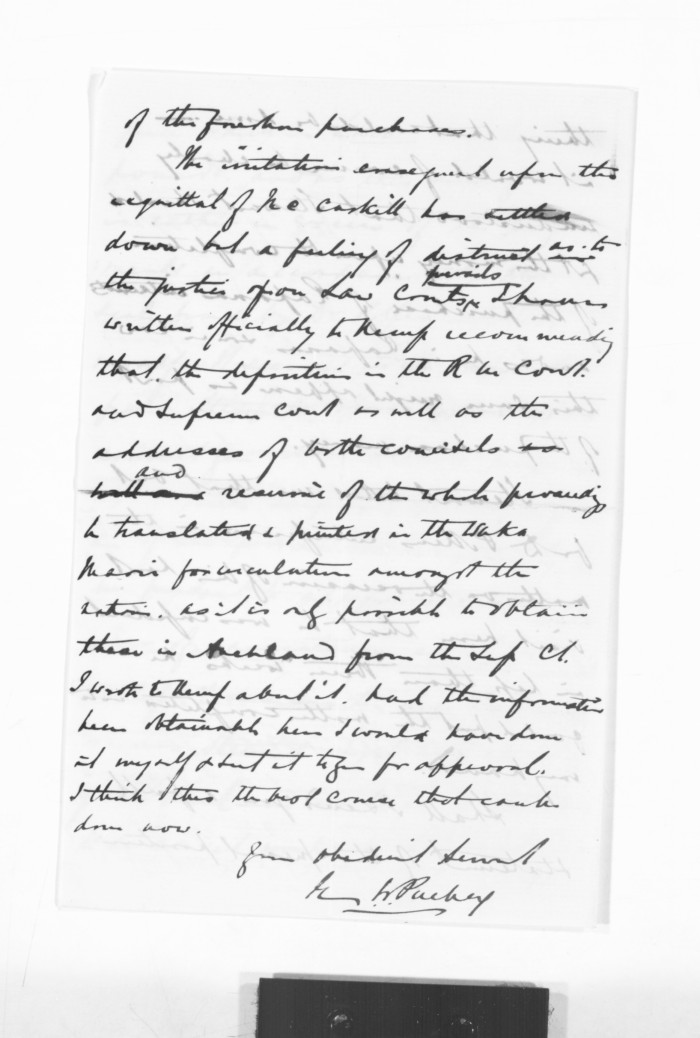 of the foreshore purchases.
The irritation consequent upon the
acquittal of McCaskill has settled
down but a feeling of distrust as to
persists
the justice of our Law Courts, I have
written officially to Kemp recommending
that the depositions in the R M Court
and Supreme Court as well as the
addresses of both counsels
and
resumé of the whole proceedings
be translated & printed in the Waka
Maori for circulation amongst the
natives. as it is only possible to obtain
these in Auckland from the Sup Ct.
I wrote to Kemp about it. had the information
been obtainable here I would have done
it myself & sent it to you for approval.
I think this the best course that can be
done now.
Your obedient Servant
W. Puckey